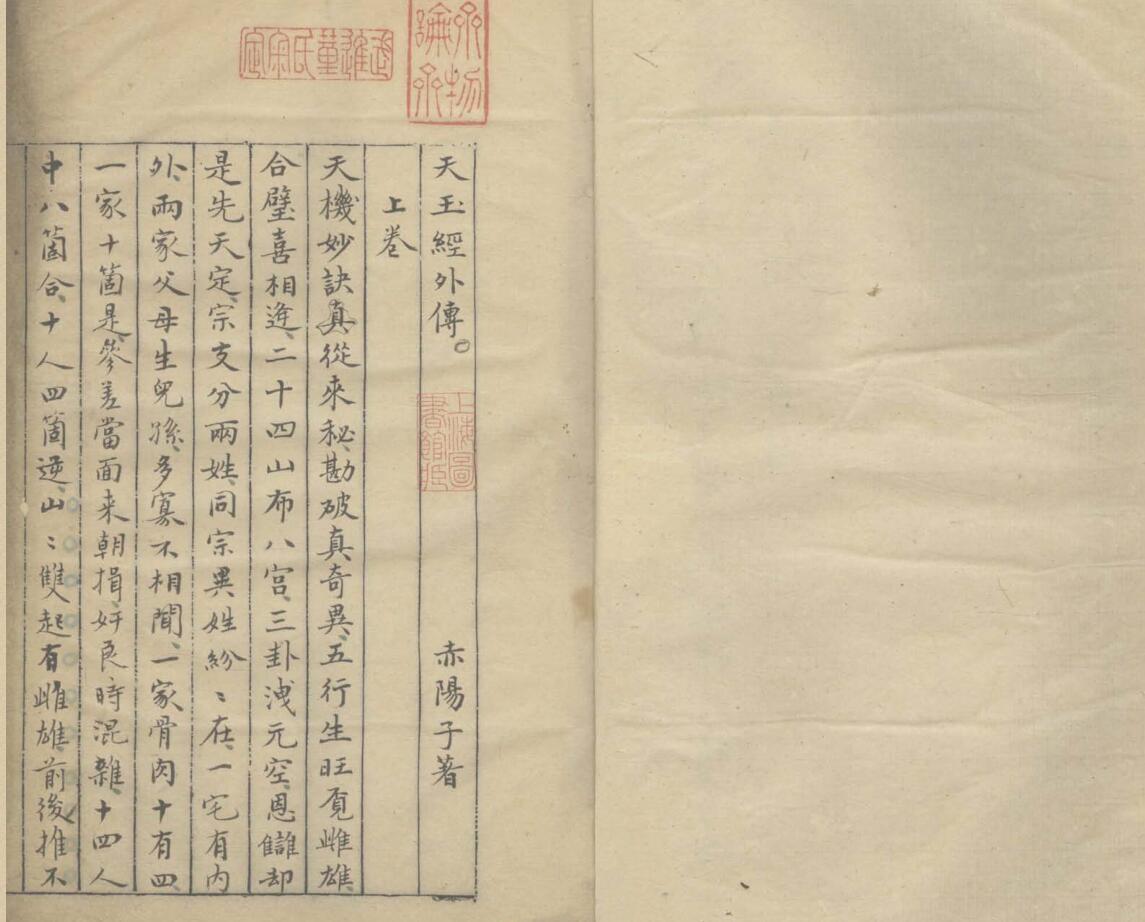 天玉經外傳 赤陽子著
上卷
天機妙訣真從來秘勘破真奇異五行生旺覔雌雄
合璧喜相逢二十四山布八宮三卦洩元空恩讎却
是先天定宗支分兩姓同宗異姓紛〻在一宅有內
外兩家父母生兒孫多寡不相聞一家骨肉十有四
一家十箇是參差當面来朝揖奸良時混雜十四人
中八箇合十人四箇逆山〻雙起有雌雄前後推不
武進董氏
上海圖
書館藏